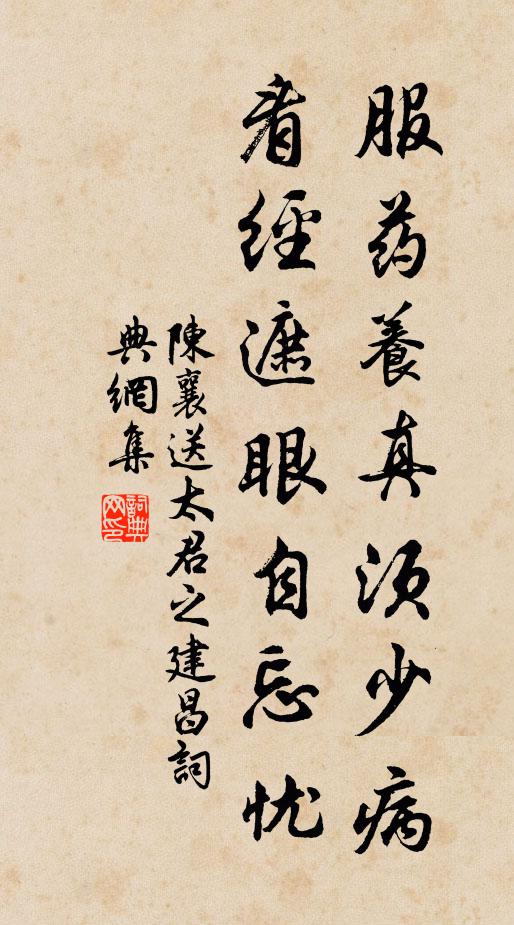 服药養真須少病
看經遮眼自忘忧
陳襄送太君之建昌詞
典網集
詞典网印